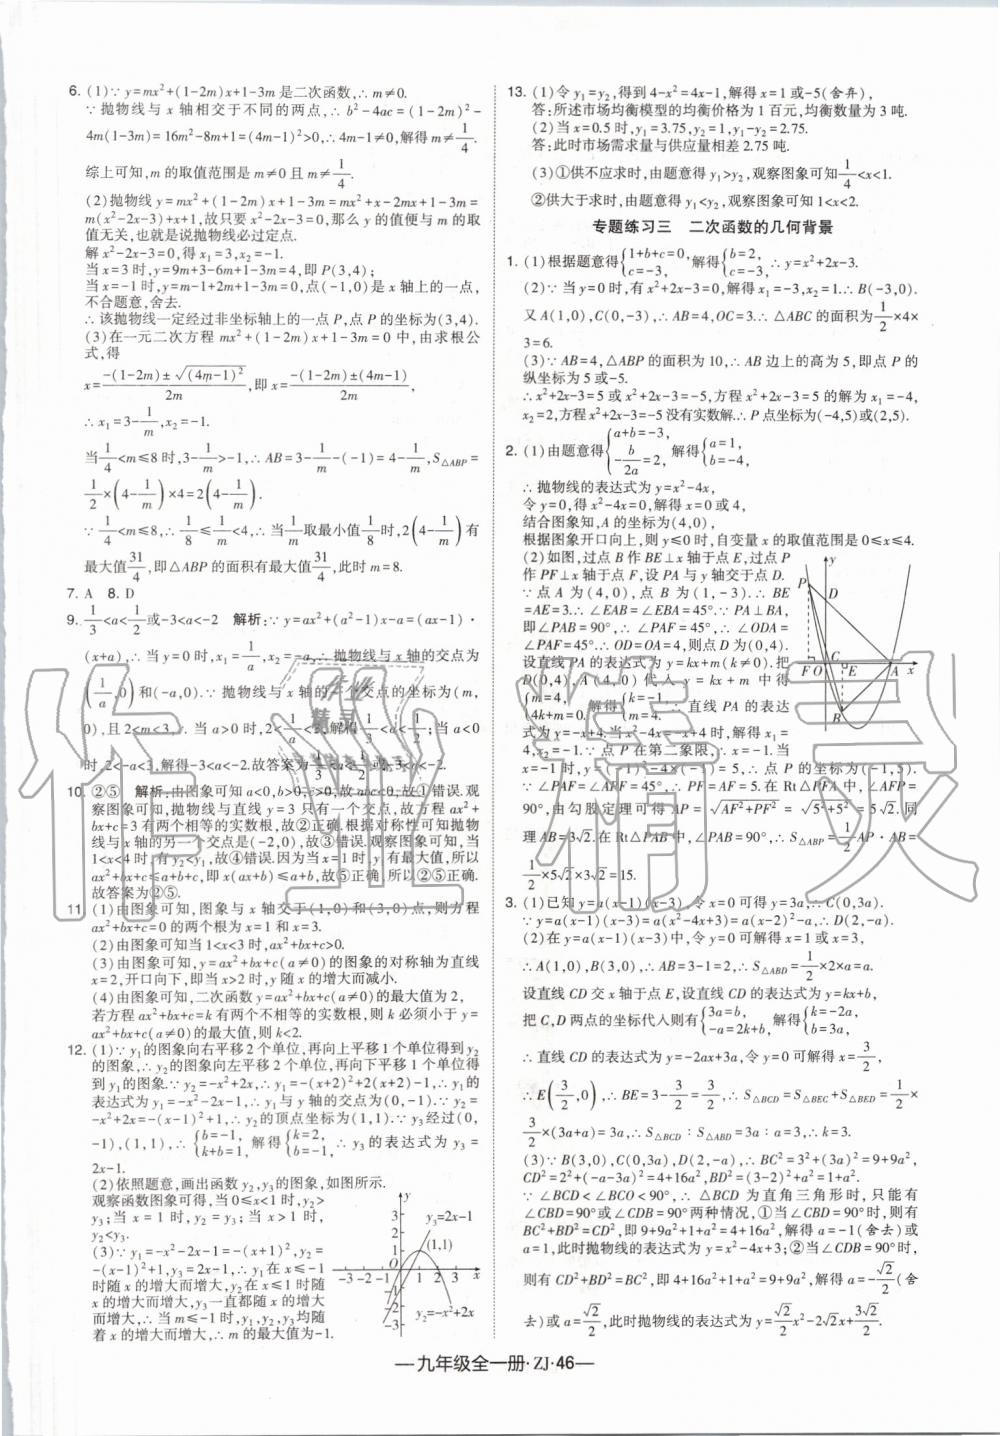 6. (1)∵ y=mx²+(1-2m)x+1-3m 是二次函数,∴ m≠0.
∵ 抛物线与 x 轴相交于不同的两点,∴ b²-4ac=(1-2m)²-
4m(1-3m)=16m²-8m+1=(4m-1)²>0,∴ 4m-1≠0,解得 m≠1/4.
综上可知,m 的取值范围是 m≠0 且 m≠1/4.
(2)抛物线 y=mx²+(1-2m)x+1-3m=mx²+x-2mx+1-3m=
m(x²-2x-3)+x+1,故只要 x²-2x-3=0,那么 y 的值便与 m 的取
值无关,也就是说抛物线必过定点.
解 x²-2x-3=0,得 x₁=3,x₂=-1.
当 x=3 时,y=9m+3-6m+1-3m=4,即 P(3,4);
当 x=-1 时,y=m-1+2m+1-3m=0,点(-1,0)是 x 轴上的一点,
不合题意,舍去.
∴ 该抛物线一定经过非坐标轴上的一点 P,点 P 的坐标为(3,4).
(3)在一元二次方程 mx²+(1-2m)x+1-3m=0 中,由求根公
式,得
x=(-(1-2m)±√(4m-1)²)/2m,即 x=(-(1-2m)±(4m-1))/2m,
∴ x₁=3-1/m,x₂=-1.
当1/4<m≤8 时,3-1/m>-1,∴ AB=3-1/m-(-1)=4-1/m,S△ABP=
1/2×(4-1/m)×4=2(4-1/m).
∵ 1/4<m≤8,∴ 1/8≤1/m<4,∴ 当1/m取最小值1/8时,2(4-1/m)有
最大值31/4,即△ABP 的面积有最大值31/4,此时 m=8.
7. A 8. D
9. 1/3<a<1/2或-3<a<-2 解析:∵ y=ax²+(a²-1)x-a=(ax-1)·
(x+a),∴ 当 y=0 时,x₁=1/a,x₂=-a,∴ 抛物线与 x 轴的交点为
(1/a,0)和(-a,0).∵ 抛物线与 x 轴的一个交点的坐标为(m,
0),且 2<m<3,∴ 当 a>0 时,2<1/a<3,解得1/3<a<1/2;当 a<0
时,2<-a<3,解得-3<a<-2.故答案为1/3<a<1/2或-3<a<-2.
10. ②⑤ 解析:由图象可知 a<0,b>0,c>0,故 abc<0,故①错误.观
察图象可知,抛物线与直线 y=3 只有一个交点,故方程 ax²+
bx+c=3 有两个相等的实数根,故②正确.根据对称性可知抛物
线与 x 轴的另一个交点是(-2,0),故③错误.观察图象可知,当
1<x<4 时,有 y₂<y₁,故④错误.因为当 x=1 时,y₁ 有最大值,所以
ax²+bx+c≤a+b+c,即 x(ax+b)≤a+b,故⑤正确.所以②⑤正确.
故答案为②⑤.
11. (1)由图象可知,图象与 x 轴交于(1,0)和(3,0)点,则方程
ax²+bx+c=0 的两个根为 x=1 和 x=3.
(2)由图象可知当 1<x<3 时,ax²+bx+c>0.
(3)由图象可知,y=ax²+bx+c(a≠0)的图象的对称轴为直线
x=2,开口向下,即当 x>2 时,y 随 x 的增大而减小.
(4)由图象可知,二次函数 y=ax²+bx+c(a≠0)的最大值为 2,
若方程 ax²+bx+c=k 有两个不相等的实数根,则 k 必须小于 y=
ax²+bx+c(a≠0)的最大值,则 k<2.
12. (1)∵ y₁的图象向右平移 2 个单位,再向上平移 1 个单位得到 y₂
的图象,∴ y₂的图象向左平移 2 个单位,再向下平移 1 个单位得
到 y₁的图象.∵ y₂=-x²+2x,∴ y₁=-(x+2)²+2(x+2)-1,∴ y₁的
表达式为 y₁=-x²-2x-1,∴ y₁与 y 轴的交点为(0,-1).∵ y₂=
-x²+2x=-(x-1)²+1,∴ y₂的顶点坐标为(1,1).∵ y₃经过(0,
-1),(1,1),∴ {b=-1, k+b=1, 解得{k=2, b=-1. ∴ y₃ 的表达式为 y₃=
2x-1.
(2)依照题意,画出函数 y₂,y₃的图象,如图所示.
观察函数图象可得,当 0≤x<1 时,y₂>
y₃;当 x=1 时,y₂=y₃;当 x>1 时,
y₂<y₃.
(3)∵ y₁=-x²-2x-1=-(x+1)²,y₂=
-(x-1)²+1,∴ 在 x≤-1
时随 x 的增大而增大,y₂在 x≤1 时随
x 的增大而增大,y₃一直都随 x 的增大
而增大,∴ 当 m≤-1 时,y₁,y₂,y₃均随
着 x 的增大而增大,∴ m 的最大值为-1.
y
3
2
1
-1
-2
-3
-3 -2 -1 O 1 2 3 x
y₃=2x-1
(1,1)
y₂=-x²+2x
13. (1)令 y₁=y₂,得到 4-x²=4x-1,解得 x=1 或-5(舍弃),
答:所述市场均衡模型的均衡价格为 1 百元,均衡数量为 3 吨.
(2)当 x=0.5 时,y₁=3.75,y₂=1,y₁-y₂=2.75.
答:此时市场需求量与供应量相差 2.75 吨.
(3)①供不应求时,由题意得 y₁>y₂,观察图象可知1/4<x<1.
②供大于求时,由题意得 y₁<y₂,观察图象可知 1<x<2.
专题练习三 二次函数的几何背景
1. (1)根据题意得{1+b+c=0, c=-3, 解得{b=2, c=-3, ∴ y=x²+2x-3.
(2)∵ 当 y=0 时,有 x²+2x-3=0,解得 x₁=-3,x₂=1.∴ B(-3,0).
又 A(1,0),C(0,-3),∴ AB=4,OC=3.∴ △ABC 的面积为1/2×4×
3=6.
(3)∵ AB=4,△ABP 的面积为 10,∴ AB 边上的高为 5,即点 P 的
纵坐标为 5 或-5.
∴ x²+2x-3=5 或 x²+2x-3=-5,方程 x²+2x-3=5 的解为 x₁=-4,
x₂=2,方程 x²+2x-3=-5 没有实数解.∴ P 点坐标为(-4,5)或(2,5).
2. (1)由题意得{a+b=-3, -b/2a=2, 解得{a=1, b=-4,
∴ 抛物线的表达式为 y=x²-4x,
令 y=0,得 x²-4x=0,解得 x=0 或 x=4,
结合图象知,A 的坐标为(4,0),
根据图象开口向上,则 y≤0 时,自变量 x 的取值范围是 0≤x≤4.
(2)如图,过点 B 作 BE⊥x 轴于点 E,过点 P
作 PF⊥x 轴于点 F,设 PA 与 y 轴交于点 D.
∵ 点 A 为(4,0),点 B 为(1,-3).∴ BE
=AE=3.∴ ∠EAB=∠EBA=45°.∵ PA⊥BA,
即∠PAB=90°,∴ ∠PAF=45°,∴ ∠ODA=
∠OAD=45°.∴ OD=OA=4,则点 D(0,4),
设直线 PA 的表达式为 y=kx+m(k≠0).把
D(0,4),A(4,0)代入 y=kx+m 中得
{m=4, 4k+m=0. 解得{k=-1, m=4. ∴ 直线 PA 的表达
式为 y=-x+4.当 x²-4x=-x+4 时,解得 x=-1 或 x=4.当
x=-1 时,y=x²-4x=5.∵ 点 P 在第二象限,∴ 点 P 的坐标为(-1,5).
∵ ∠PAF=∠APF=45°,∴ PF=AF=5.在 Rt△PFA 中,∠AFP=
90°,由勾股定理可得 AP=√(AF²+PF²)=√(5²+5²)=5√2.同
理 AB=3√2.在 Rt△PAB 中,∠PAB=90°,∴ S△ABP=1/2AP·AB=
1/2×5√2×3√2=15.
P
y
D
F O C E A x
B
3. (1)已知 y=a(x-1)(x-3),令 x=0 可得 y=3a,∴ C(0,3a).
∵ y=a(x-1)(x-3)=a(x²-4x+3)=a(x-2)²-a,∴ D(2,-a).
(2)在 y=a(x-1)(x-3)中,令 y=0 可解得 x=1 或 x=3,
∴ A(1,0),B(3,0),∴ AB=3-1=2,∴ S△ABD=1/2×2×a=a.
设直线 CD 交 x 轴于点 E,设直线 CD 的表达式为 y=kx+b,
把 C,D 两点的坐标代入则有{3a=b, -a=2k+b, 解得{k=-2a, b=3a.
∴ 直线 CD 的表达式为 y=-2ax+3a,令 y=0 可解得 x=3/2,
∴ E(3/2,0),∴ BE=3-3/2=3/2,∴ S△BCD=S△BEC+S△BED=1/2×
3/2×(3a+a)=3a,∴ S△BCD∶S△ABD=3a∶a=3,∴ k=3.
(3)∵ B(3,0),C(0,3a),D(2,-a),∴ BC²=3²+(3a)²=9+9a²,
CD²=2²+(-a-3a)²=4+16a²,BD²=(3-2)²+a²=1+a².
∵ ∠BCD<∠BCO<90°,∴ △BCD 为直角三角形时,只能有
∠CBD=90°或∠CDB=90°两种情况,①当∠CBD=90°时,则有
BC²+BD²=CD²,即 9+9a²+1+a²=4+16a²,解得 a=-1(舍去)或
a=1,此时抛物线的表达式为 y=x²-4x+3;②当∠CDB=90°时,
则有 CD²+BD²=BC²,即 4+16a²+1+a²=9+9a²,解得 a=-√2/2(舍
去)或 a=√2/2,此时抛物线的表达式为 y=√2/2x²-2√2x+3√2/2.
—九年级全一册·ZJ·46—
作业精灵